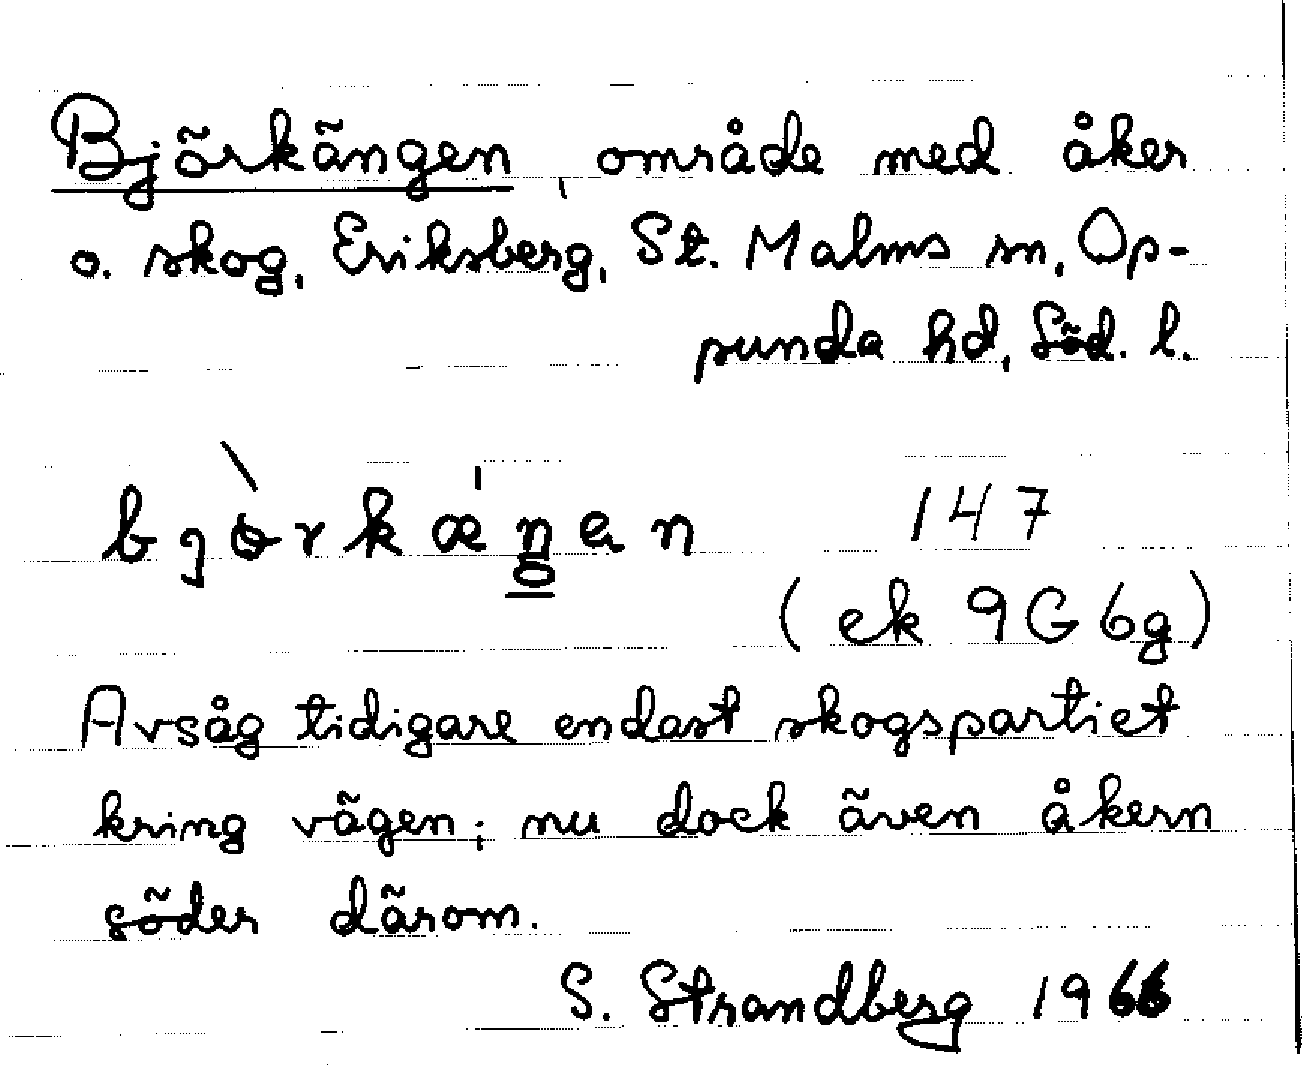 Björkängen, område med åker
o. skog, Eriksberg, St. Malms sn, Op-
punda hd, Söd. l.
bjòrkæ̍ŋen 147
(ek 9G 6g)
Avsåg tidigare endast skogspartiet
kring vägen; nu dock även åkern
söder därom.
S. Strandberg 1966